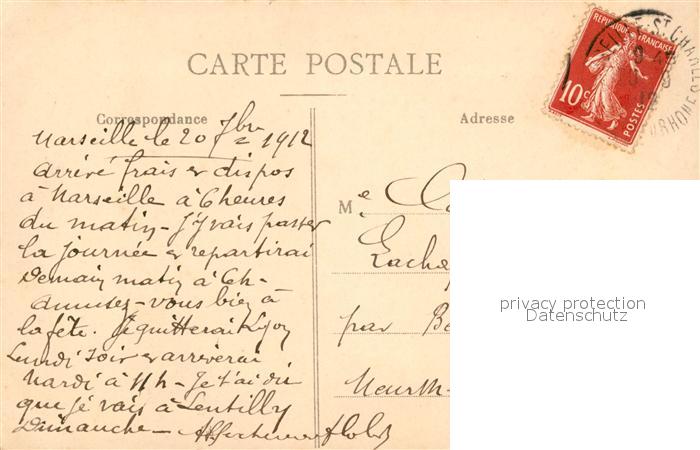 CARTE POSTALE
Correspondance
Marseille le 20 7bre 1912
arrivé frais et dispos
à Marseille à 6 heures
du matin - J'y vais passer
la journée et repartirai
Demain matin à 6h -
Amusez-vous bien à
la fête. Je quitterai Lyon
Lundi soir et arriverai
Mardi à 11h - Je t'ai dit
que je vais à Lentilly
Dimanche - Affectueusement
Adresse
Me
par
Meurth-
REPUBLIQUE FRANÇAISE
10c
POSTES
ST CHARLES
RHONE
privacy protection
Datenschutz